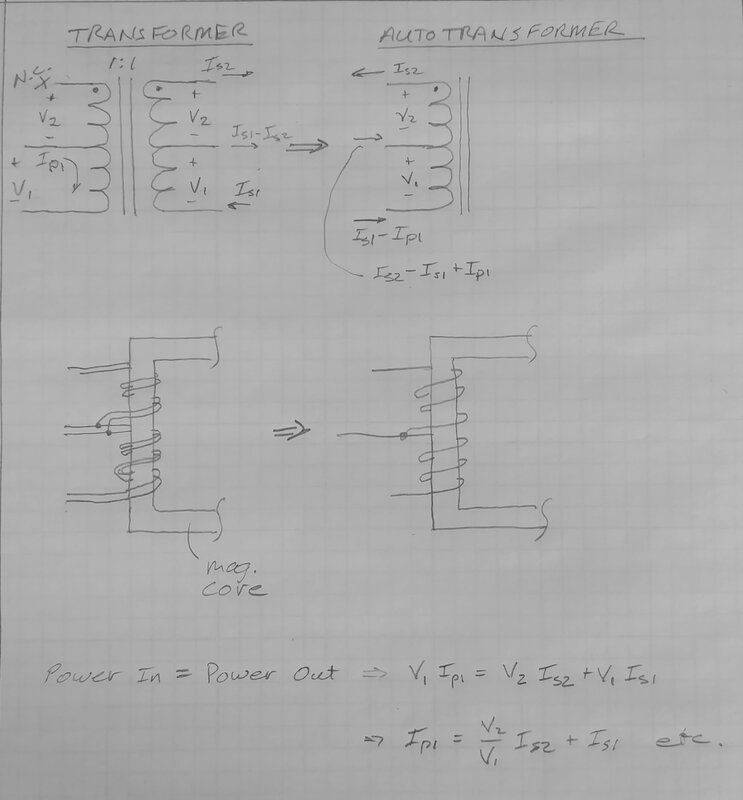 TRANSFORMER
AUTOTRANSFORMER
1:1
N.C.
X
+
V2
-
+ Ip1
V1
-
Is2
+
V2
-
Is1-Is2
+
V1
-
Is1
⇒
Is2
+
V2
-
+
V1
-
Is1 - Ip1
Is2 - Is1 + Ip1
⇒
mag.
core
Power In = Power Out ⇒ V1 Ip1 = V2 Is2 + V1 Is1
⇒ Ip1 = V2/V1 Is2 + Is1 etc.